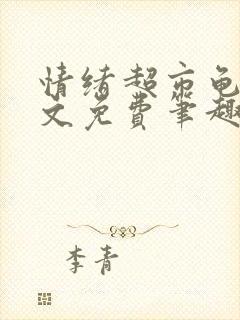 情绪超市龟
文免费笔趣
李青